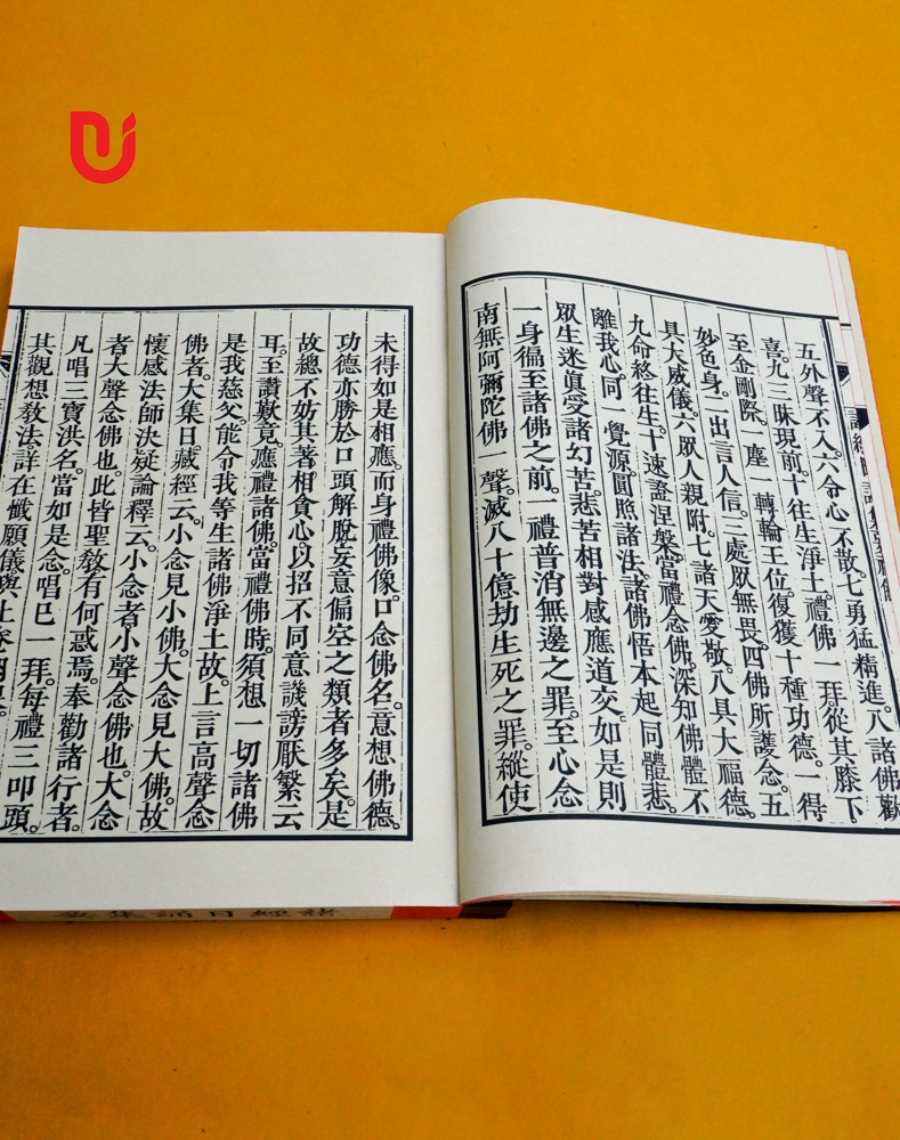 五外聲不入。六令心不散。七勇猛精進。八諸佛歡
喜。九三昧現前。十往生淨土。禮佛一拜。從其膝下
至金剛際。一塵一轉輪王位。復獲十種功德。一得
妙色身。二出言人信。三處眾無畏。四佛所護念。五
具大威儀。六眾人親附。七諸天愛敬。八具大福德。
九命終往生。十速證涅槃。當禮念佛。深知佛體不
離我心。同一覺源。圓照諸法。諸佛悟本。起同體悲。
眾生迷眞。受諸幻苦。悲苦相對。感應道交。如是則
一身徧至諸佛之前。一禮普消無邊之罪。至心念
南無阿彌陀佛一聲。滅八十億劫生死之罪。縱使
未得如是相應。而身禮佛像。口念佛名。意想佛德。
功德亦勝於口頭解脫。妄意偏空之類者多矣。是
故總不妨其著相貪心。以招不同意譏謗厭繁云
耳。至讚歎竟。應禮諸佛。當禮佛時。須想一切諸佛
是我慈父。能令我等生諸佛淨土故。上言高聲念
佛者。大集日藏經云。小念見小佛。大念見大佛。故
懷感法師決疑論釋云。小念者小聲念佛也。大念
者大聲念佛也。此皆聖敎。有何惑焉。奉勸諸行者。
凡唱三寶洪名。當如是念。唱已一拜。每禮三叩頭。
其觀想敎法。詳在懺願儀
諸經日誦集要